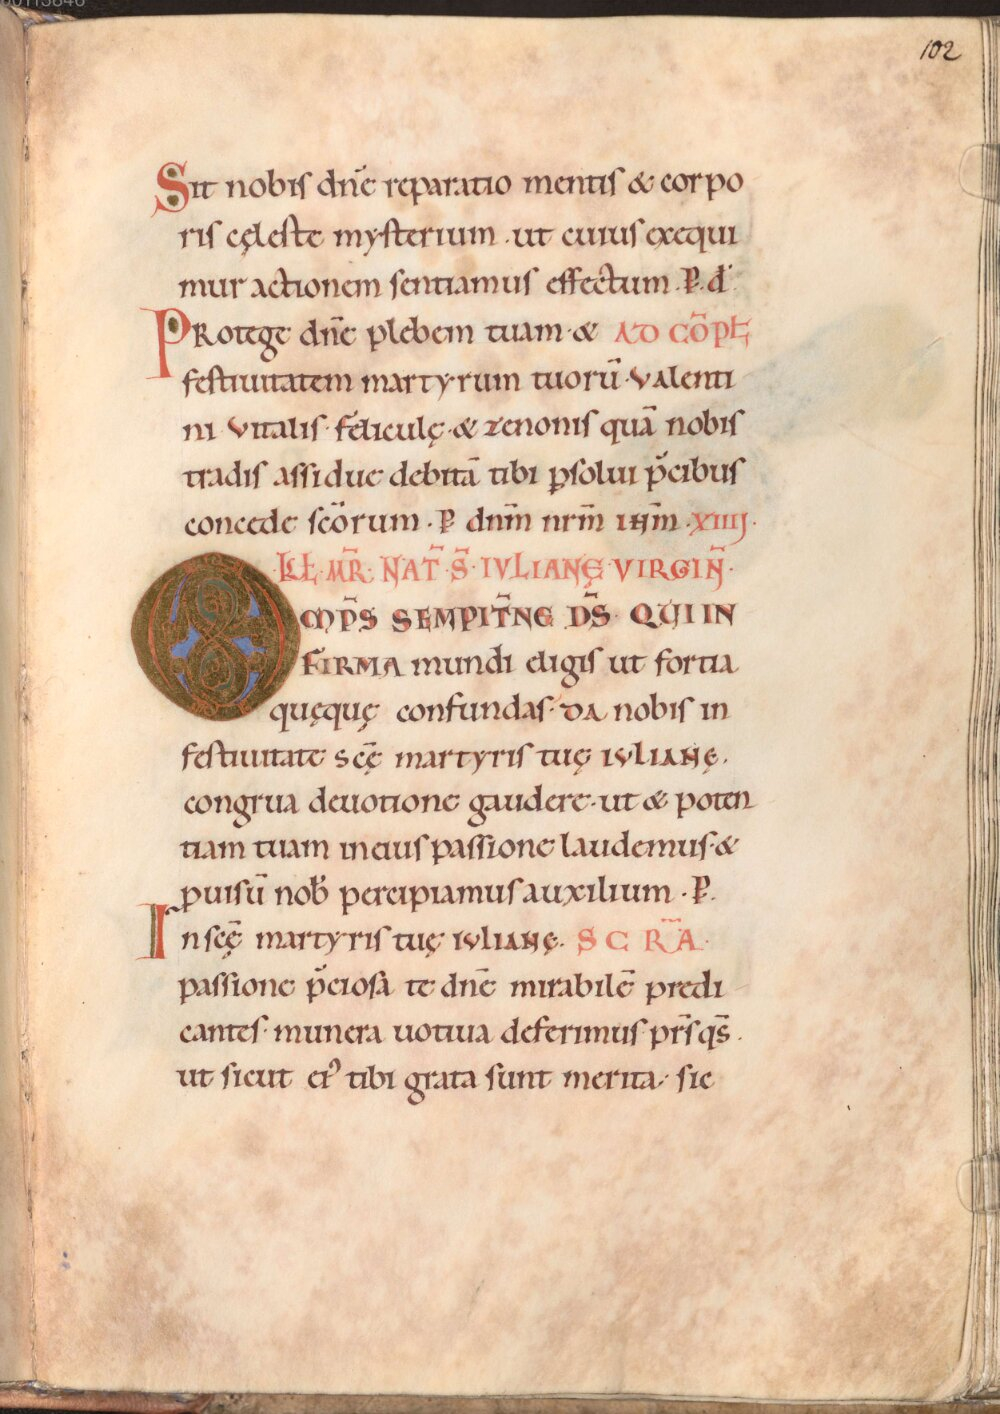 102
Sit nobis dn̄e reparatio mentis & corpo
ris cęleste mysterium · ut cuius exequi
mur actionem sentiamus effectum · P̄ · d̄
PRotege dn̄e plebem tuam · & AD CŌPL̄
festiuitatem martyrum tuorū · Valenti
ni Vitalis · feliculę · & zenonis quā nobis
tradis assidue debitā tibi ꝑsolui p̄cibus
concede scōrum · P̄ dn̄m nr̄m ihm̄ · XIIIJ ·
KL̄ · MR̄ · NAT̄ · S̄ · IVLIANĘ VIRGIN̄ ·
OMP̄S SEMPIT̄NE D̄S · QUI IN
FIRMA mundi eligis ut fortia
quęquę confundas · DA nobis in
festiuitate scę̄ martyris tuę IVLIANĘ ·
congrua deuotione gaudere · ut & poten
tiam tuam in eius passione laudemus · &
ꝓuisū nob̄ percipiamus auxilium · P̄ ·
In scę̄ martyris tuę IVLIANĘ · SECRA ·
passione p̄ciosa te dn̄e mirabilē predi
cantes · munera uotiua deferimus pr̄s qs̄ ·
ut sicut eiꝰ tibi grata sunt merita · sic